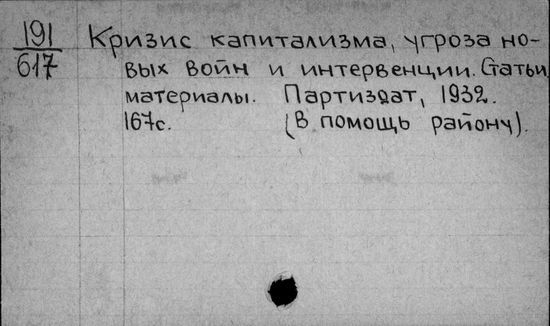 191
617
Кризис капитализма, угроза но-
вых войн и интервенции. Статьи,
материалы. Партиздат, 1932.
167с. (В помощь району).